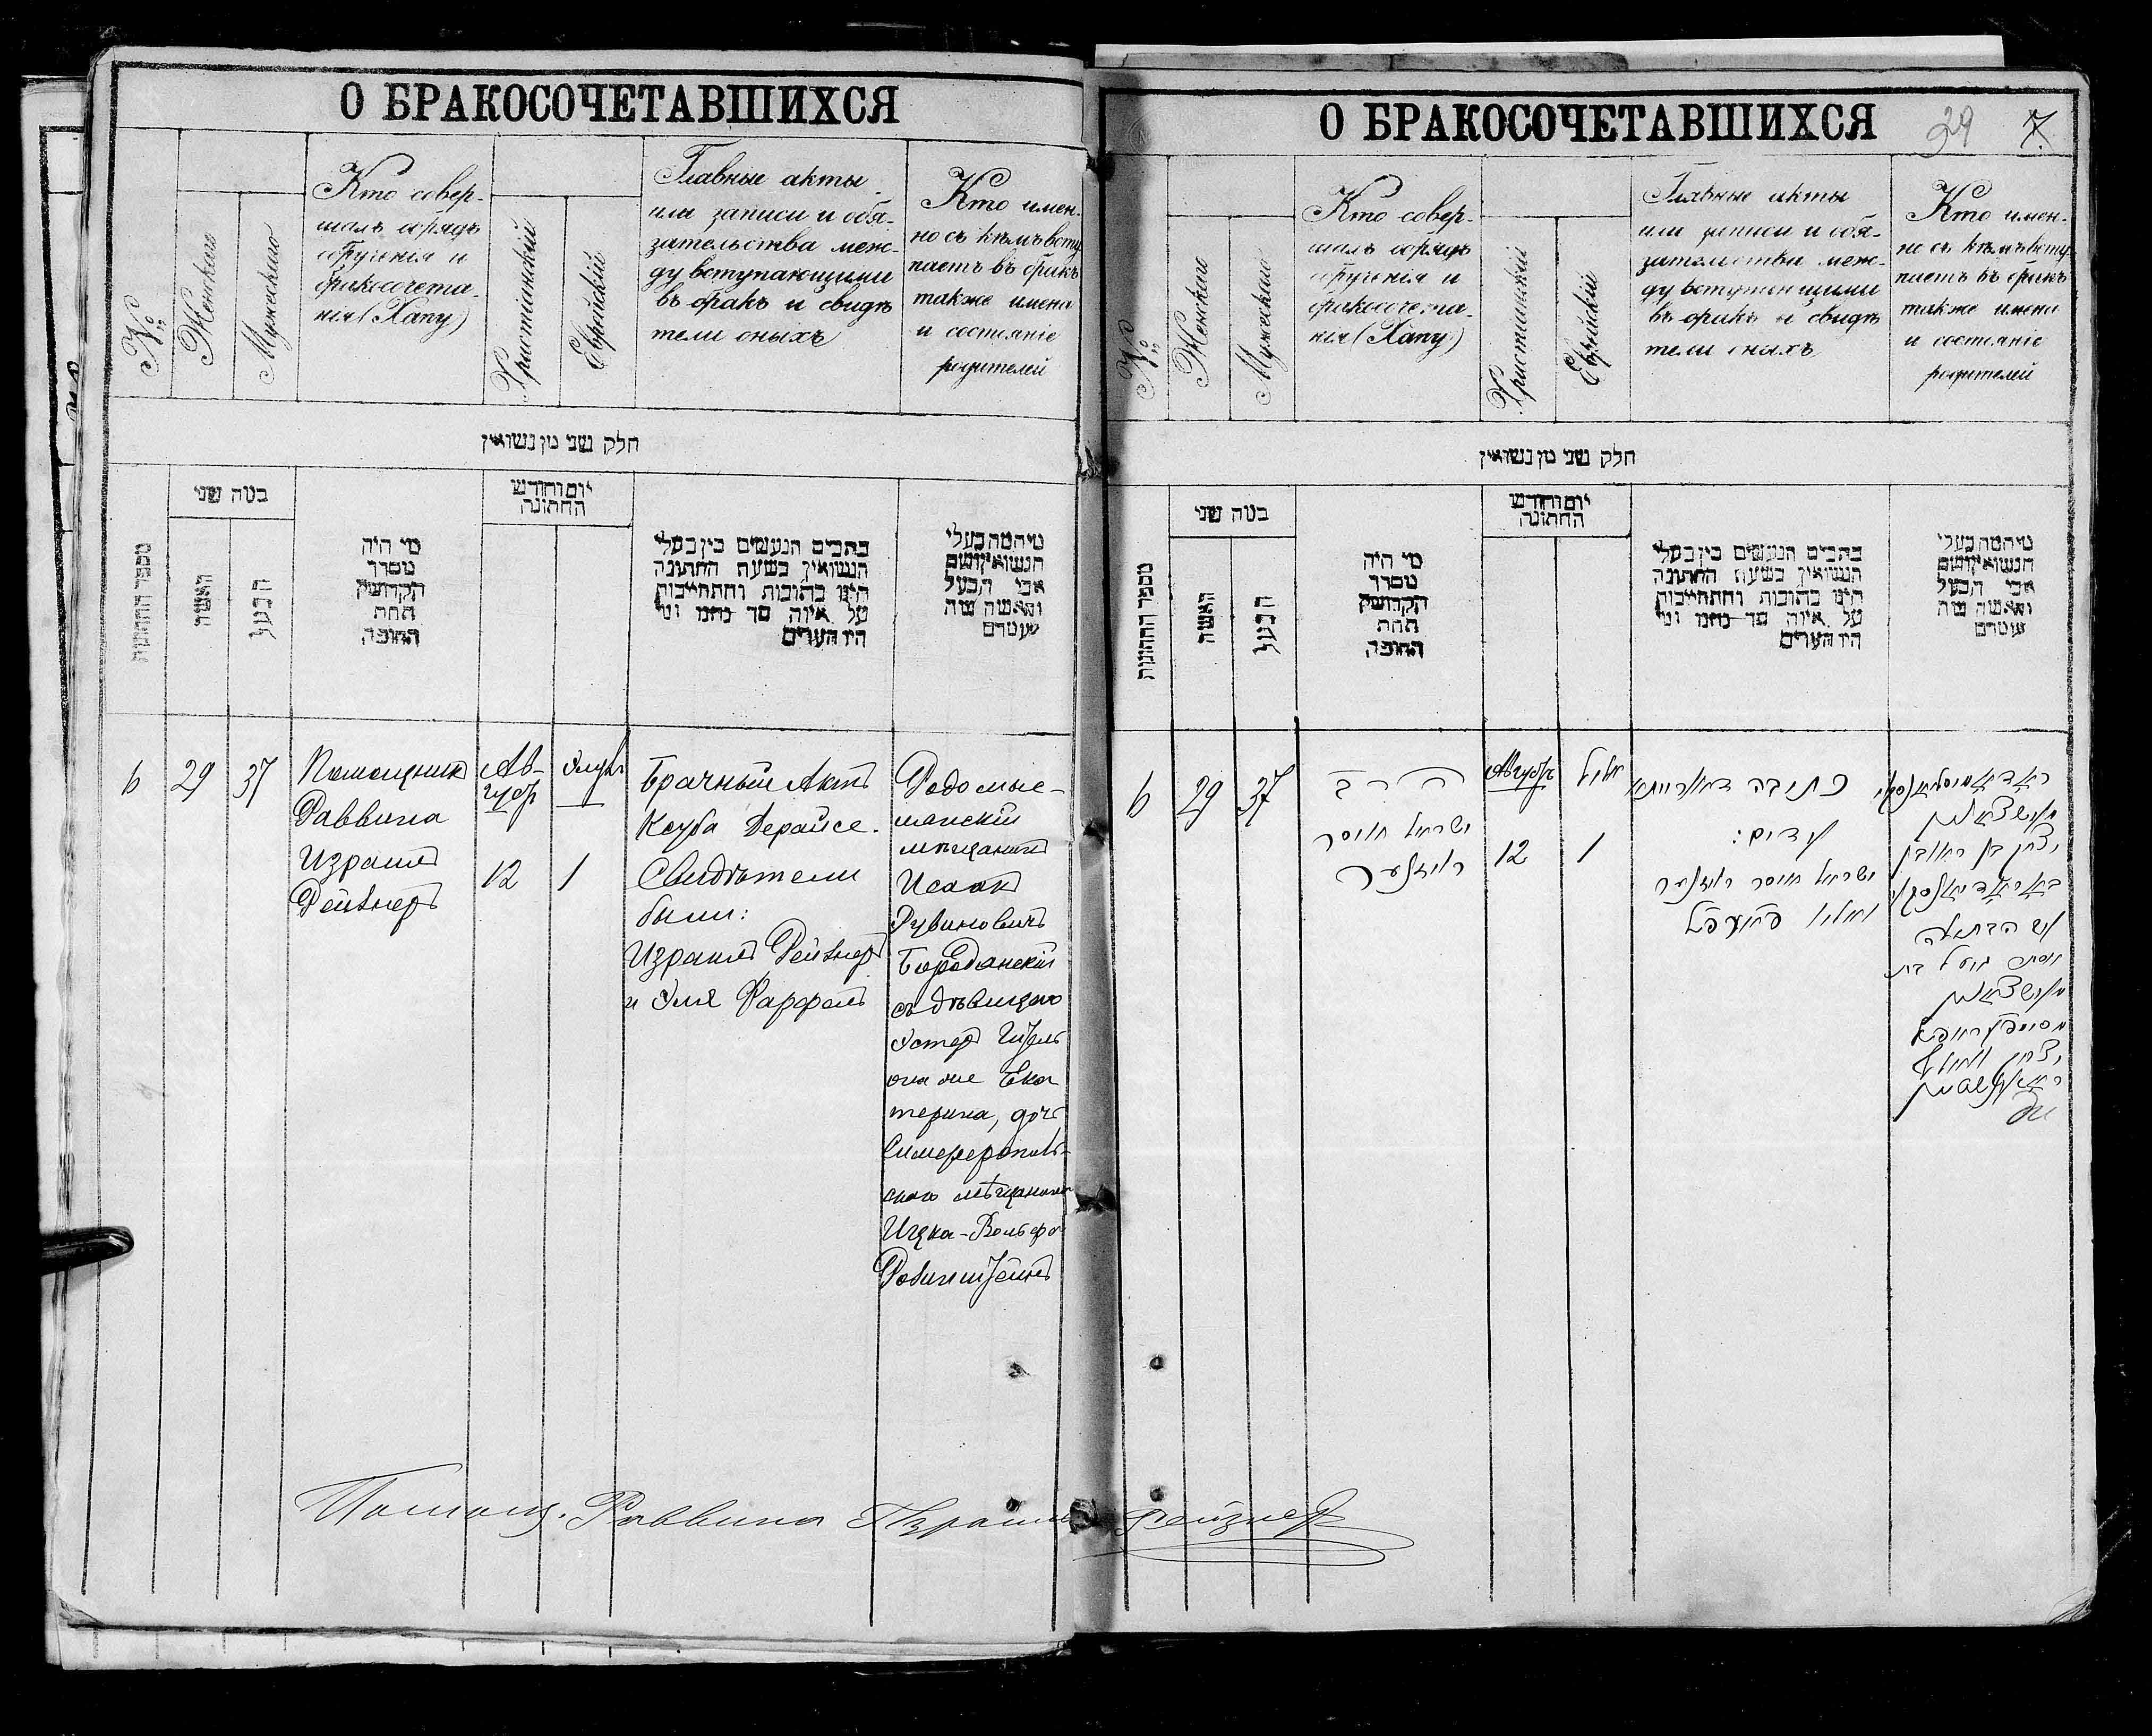 О БРАКОСОЧЕТАВШИХСЯ
№
Женскаго
Мужескаго
Кто совер-
шалъ обрядъ
обрученія и
бракосочета-
нія (Хапу)
Христіанскій
Еврейскій
Главные акты
или записи и обя-
зательства меж-
ду вступающими
въ бракъ и свидѣ
тели оныхъ
Кто имен-
но съ кѣмъ всту
паетъ въ бракъ
также имена
и состояніе
родителей
חלק שני מן נשואין
מספר החתונות
כמה שני
האשה
הבעל
מי היה
מסדר
הקדושין
תחת
החופה
יום וחודש
החתונה
כתבים הנעשים בין בעלי
הנשואין בשעת החתונה
היינו כתובות והתחייבות
על איזה סך נתנו ומי
היו העדים
מי המה בעלי
הנשואין ושם
אבי הבעל
והאשה ומה
מעמדם
6
29
37
Помощникъ
Раввина
Израиль
Рейзнеръ
Ав-
густ
12
Элулъ
1
Брачный Актъ
Ксуба Дерайсе.
Свидѣтели
были:
Израиль Рейзнеръ
и Эля Фарфель
Радомыс-
льскій
мѣщанинъ
Исаакъ
Рувиновичъ
Бородянскій
съ дѣвицею
Эстеръ Гизель
она же Ека
терина, дочь
Симферополь-
скаго мѣщанина
Ицка-Вольфа
Рабинштейнъ
О БРАКОСОЧЕТАВШИХСЯ
29 7
№
Женскаго
Мужескаго
Кто совер-
шалъ обрядъ
обрученія и
бракосочета-
нія (Хапу)
Христіанскій
Еврейскій
Главные акты
или записи и обя-
зательства меж-
ду вступающими
въ бракъ и свидѣ
тели оныхъ
Кто имен-
но съ кѣмъ всту
паетъ въ бракъ
также имена
и состояніе
родителей
חלק שני מן נשואין
מספר החתונות
כמה שני
האשה
הבעל
מי היה
מסדר
הקדושין
תחת
החופה
יום וחודש
החתונה
כתבים הנעשים בין בעלי
הנשואין בשעת החתונה
היינו כתובות והתחייבות
על איזה סך נתנו ומי
היו העדים
מי המה בעלי
הנשואין ושם
אבי הבעל
והאשה ומה
מעמדם
6
29
37
הרב
ישראל
רייזנער
Августъ
12
אלול
1
כתובה דאורייתא
עדים:
ישראל רייזנער
ואליי פארפעל
מעשצאנין
יצחק בן ראובן
באראדיאנסקי
עם הבתולה
אסתר גיזעל בת
מעשצאנין
יצחק וואלף
Помощ. Раввина Израиль Рейзнеръ